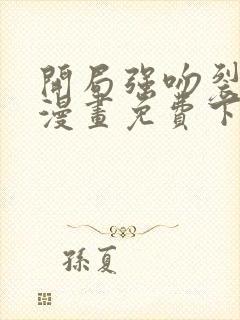 開局强吻裂
漫畫免費下
孫夏